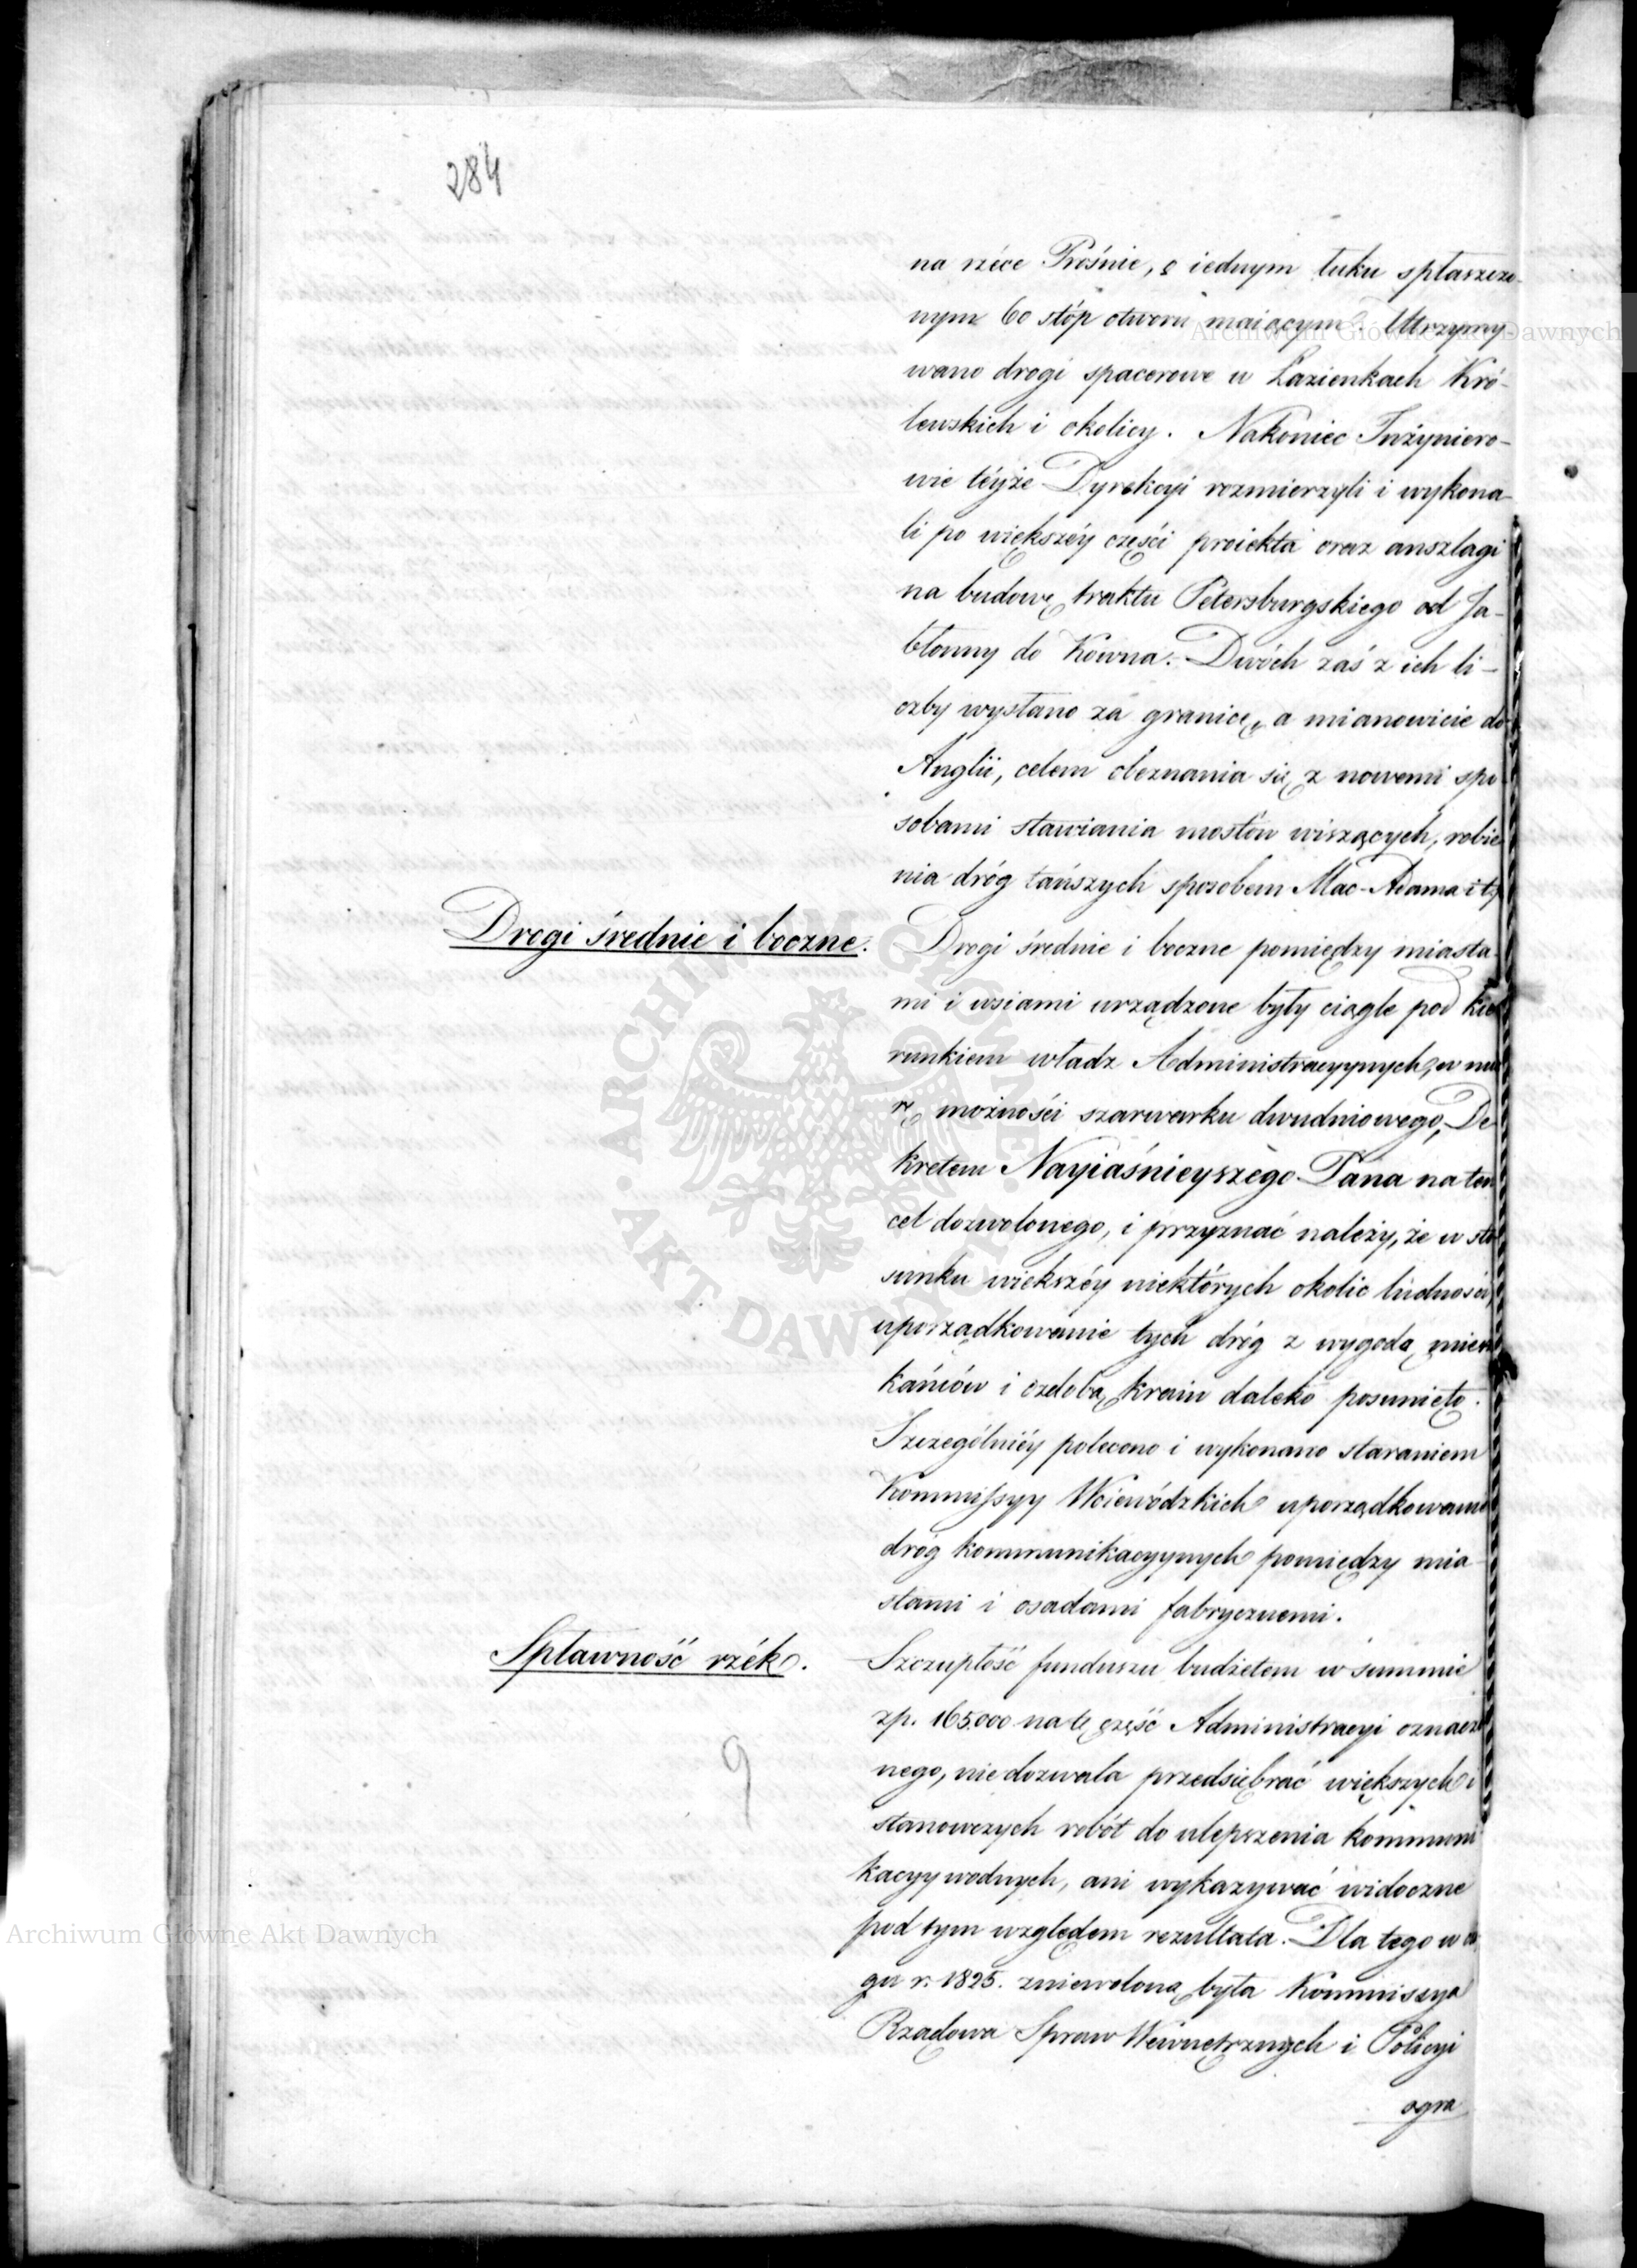 284
na rzéce Prośnie, o iednym łuku spłaszczo-
nym 60 stóp otworu maiącym. Utrzymy-
wano drogi spacerowe w Łazienkach Kró-
lewskich i okolicy. Nakoniec Inżyniero-
wie téyże Dyrekcyi rozmierzyli i wykona-
li po większéy części proiekta oraz anszlagi
na budowę traktu Petersburgskiego od Ja-
błonny do Kowna. Dwóch zaś z ich li-
czby wysłano za granicę, a mianowicie do
Anglii, celem obeznania się z nowemi spo
sobami stawiania mostów wiszących, robie
nia dróg tańszych sposobem Mac-Adama i t.p.
Drogi średnie i boczne.
Drogi średnie i boczne pomiędzy miasta-
mi i wsiami urządzone były ciągle pod kie
runkiem władz Administracyynych, w mia
rę możności szarwarku dwudniowego, De
kretem Nayiaśnieyszego Pana na ten
cel dozwolonego, i przyznać należy, że w sto
sunku większéy niektórych okolic ludności,
uporządkowanie tych dróg z wygodą miesz
kańców i ozdobą kraiu daleko posunięto.
Szczególniéy polecono i wykonano staraniem
Kommissyy Woiewódzkich uporządkowanie
dróg kommunikacyynych pomiędzy mia-
stami i osadami fabrycznemi.
Spławność rzék.
Szczupłość funduszu budżetem w summie
zp. 165.000 na tę część Administracyi oznaczo
nego, nie dozwala przedsiębrać większych i
stanowczych robót do ulepszenia kommuni
kacyy wodnych, ani wykazywać widoczne
pod tym względem rezultata. Dla tego w cią
gu r. 1825. zniewoloną była Kommissya
Rządowa Spraw Wewnętrznych i Policyi
ogra
9
Archiwum Główne Akt Dawnych
Archiwum Główne Akt Dawnych
ARCHIWUM GŁÓWNE AKT DAWNYCH